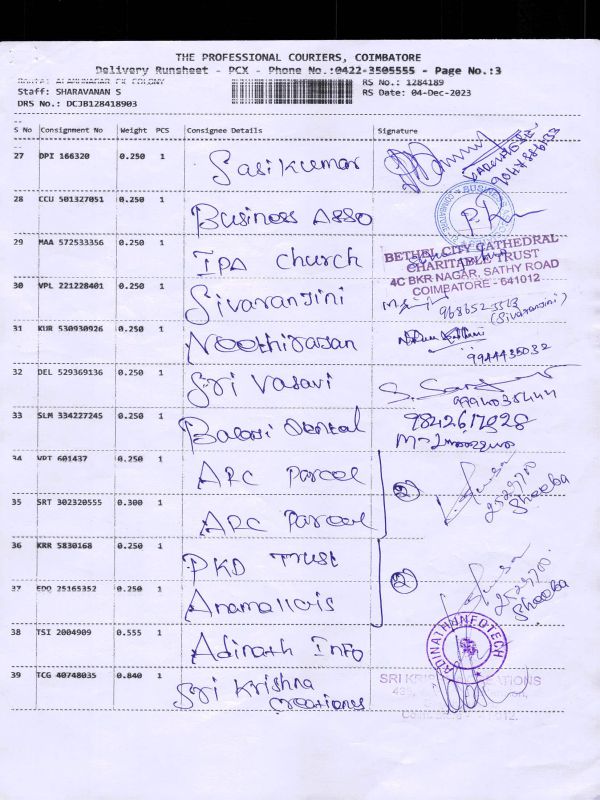 THE PROFESSIONAL COURIERS, COIMBATORE
Delivery Runsheet - PCX - Phone No.:0422-3505555 - Page No.:3
Staff: SHARAVANAN S
RS No.: 1284189
DRS No.: DCJB128418903
RS Date: 04-Dec-2023
S No Consignment No Weight PCS Consignee Details Signature
27 DPI 166320 0.250 1 Sasikumar
28 CCU 501327051 0.250 1 Business Asso
29 MAA 572533356 0.250 1 IPA church
BETHEL CITY CATHEDRAL
CHARITABLE TRUST
4C BKR NAGAR, SATHY ROAD
COIMBATORE - 641012
30 VPL 221228401 0.250 1 Sivaranjini
(Sivaranjini)
31 KUR 530930926 0.250 1 Noothirajan
9944435032
32 DEL 529369136 0.250 1 Sri Vasavi
33 SLM 334227245 0.250 1 Balaji Dental 9842617028
34 VPT 601437 0.250 1 ARC Parcel
2
2529700
Sheeba
35 SRT 302320555 0.300 1 ARC Parcel
36 KRR 5830168 0.250 1 PKD Trust
2
2529700
Sheeba
37 EDQ 25165352 0.250 1 Anamallais
38 TSI 2004909 0.555 1 Adinath Info
ADINATH INFOTECH
39 TCG 40748035 0.840 1 Sri Krishna
Creations